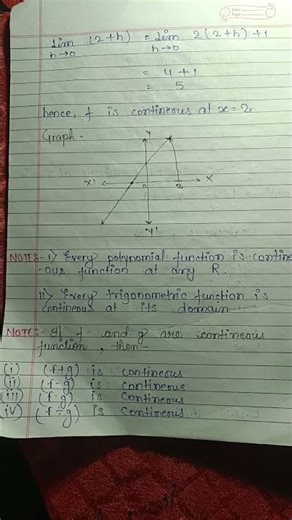 lim (2+h) = lim 2(2+h)+1
h→0 h→0
= 4+1
= 5
hence, f is contineous at x=2
Graph-
Y
X' 0 2 X
Y'
NOTE:- i) Every polynomial function is contine
-ous function at any R.
ii) Every trigonometric function is
contineous at its domain
NOTE:- If f and g are contineous
function, then-
(i) (f+g) is contineous
(ii) (f-g) is contineous
(iii) (f.g) is contineous
(iv) (f÷g) is contineous